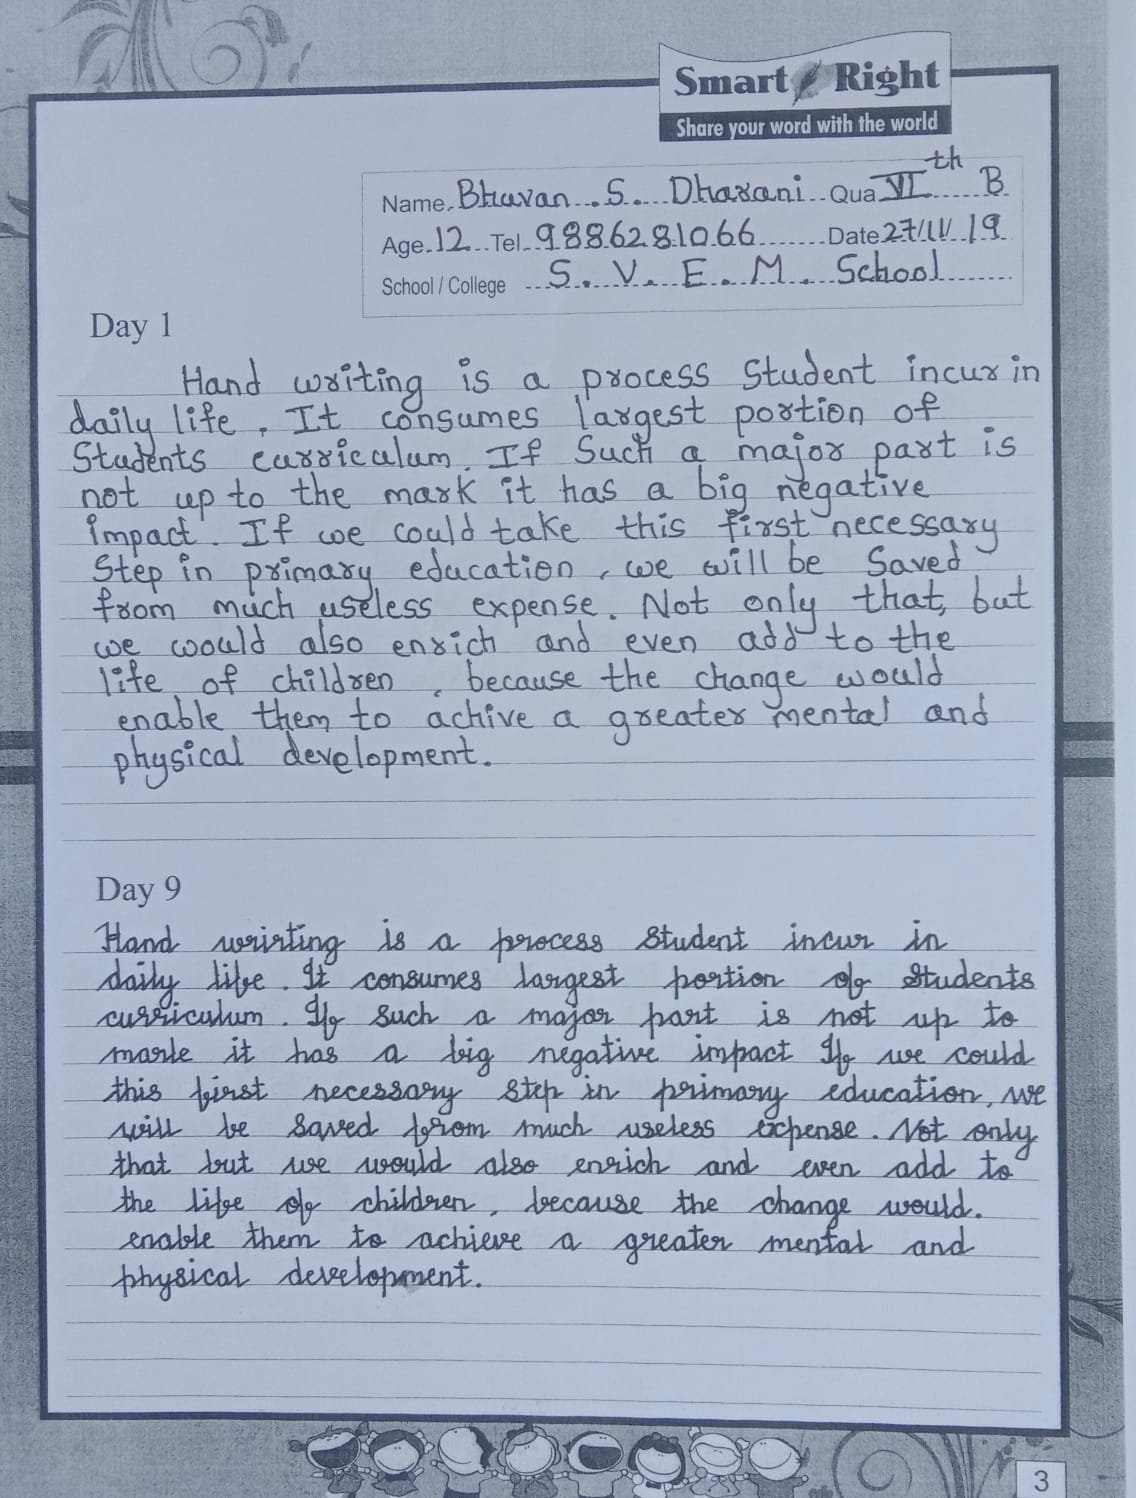 Smart Right
Share your word with the world
Name Bhuvan S. Dharani Qua VIth B
Age 12 Tel 9886281066 Date 27/11/19
School / College S. V. E. M. School
Day 1
Hand writing is a process Student incur in
daily life, It consumes largest portion of
Students curriculum. If Such a major part is
not up to the mark it has a big negative
impact. If we could take this first necessary
Step in primary education, we will be Saved
from much useless expense. Not only that, but
we would also enrich and even add to the
life of children, because the change would
enable them to achive a greater mental and
physical development.
Day 9
Hand wririting is a process Student incur in
daily life. It consumes largest portion of Students
curriculum. If Such a major part is not up to
marke it has a big negative impact If we could
this first necessary step in primary education, we
will be Saved from much useless expense. Not only
that but we would also enrich and even add to
the life of children, because the change would.
enable them to achieve a greater mental and
physical development.
3